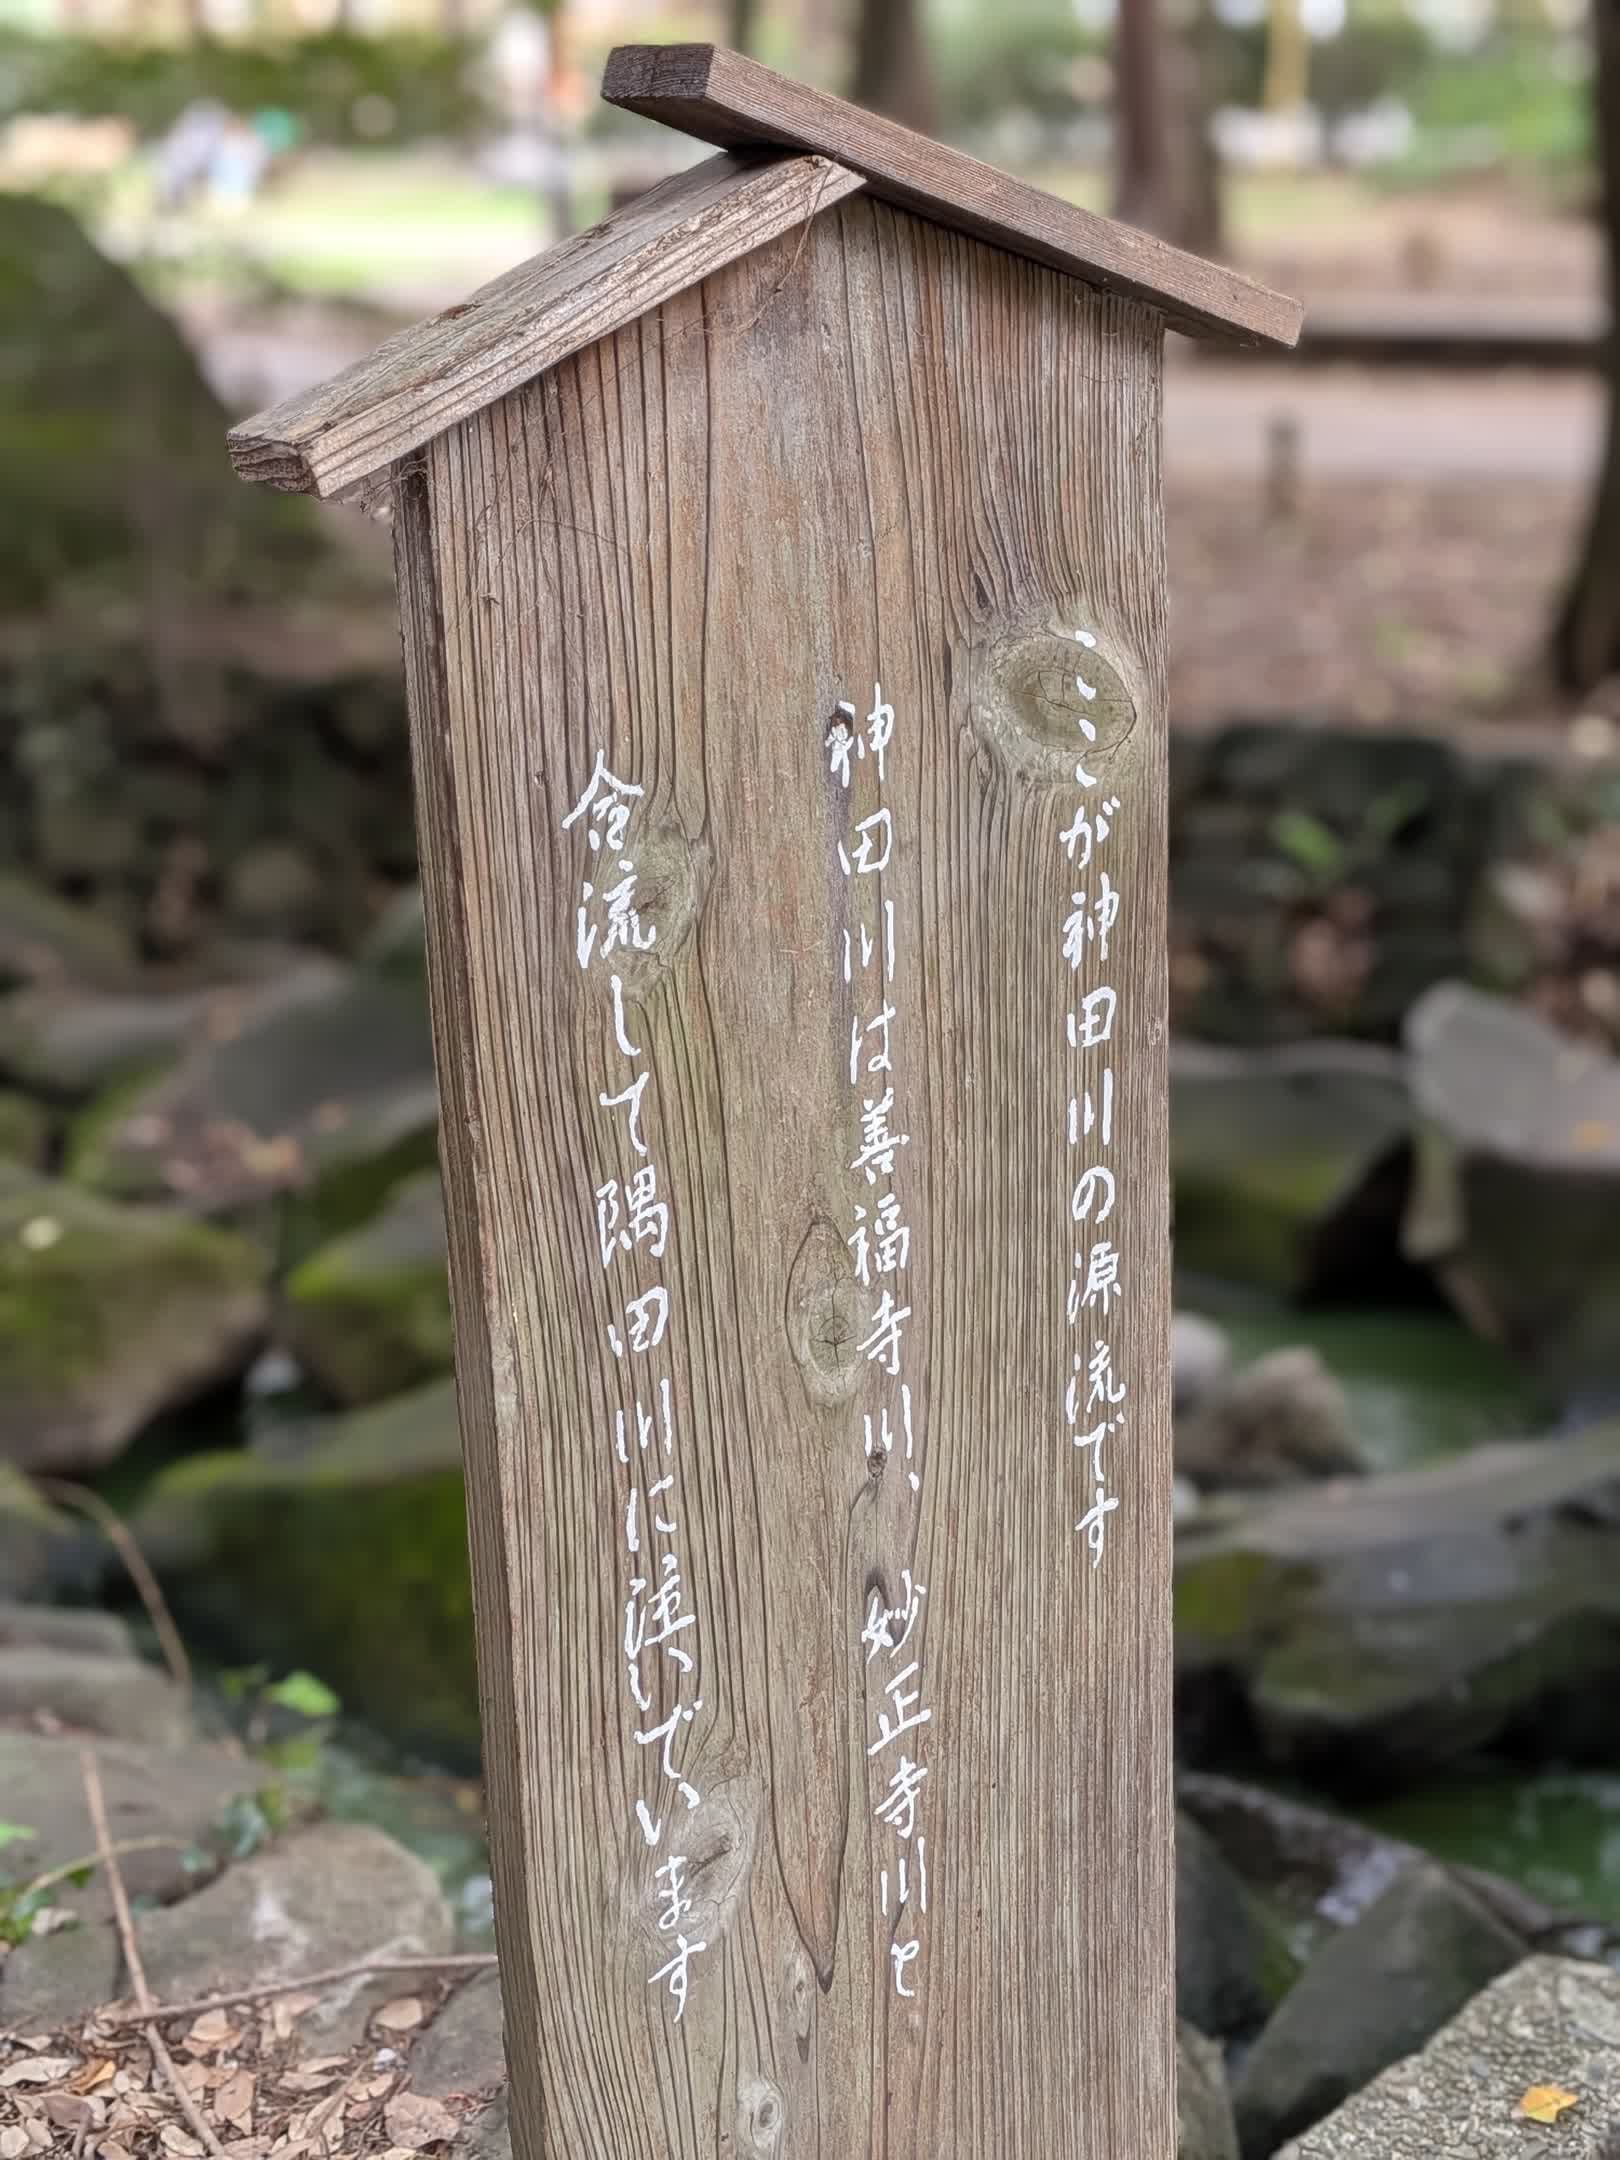 ここが神田川の源流です
神田川は善福寺川、妙正寺川と
合流して隅田川に注いでいます